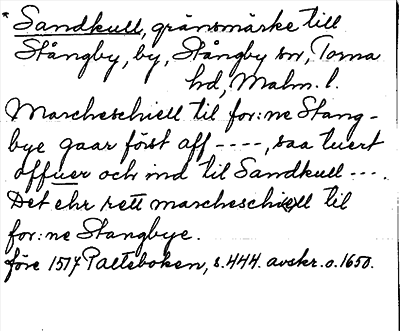 * Sandkull, gränsmärke till
Stångby, by, Stångby sn, Torna
hd, Malm. l.
Marcheschiell til for:ne Stang-
bye gaar först aff ----, saa tuert
offuer och ind til Sandkull ---.
Det ehr rett marcheschiell til
for:ne Stangbye.
före 1517 Paltsboken, s. 444. avskr. o. 1650.